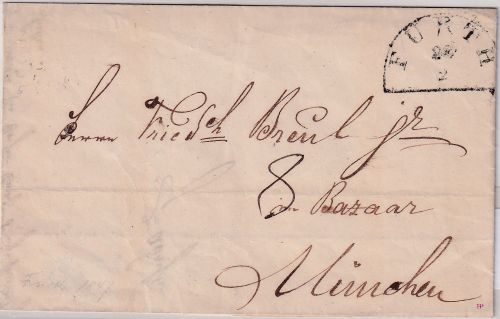 FÜRTH
28
2
Herrn Friedch Breul jr
8
im Bazaar
München